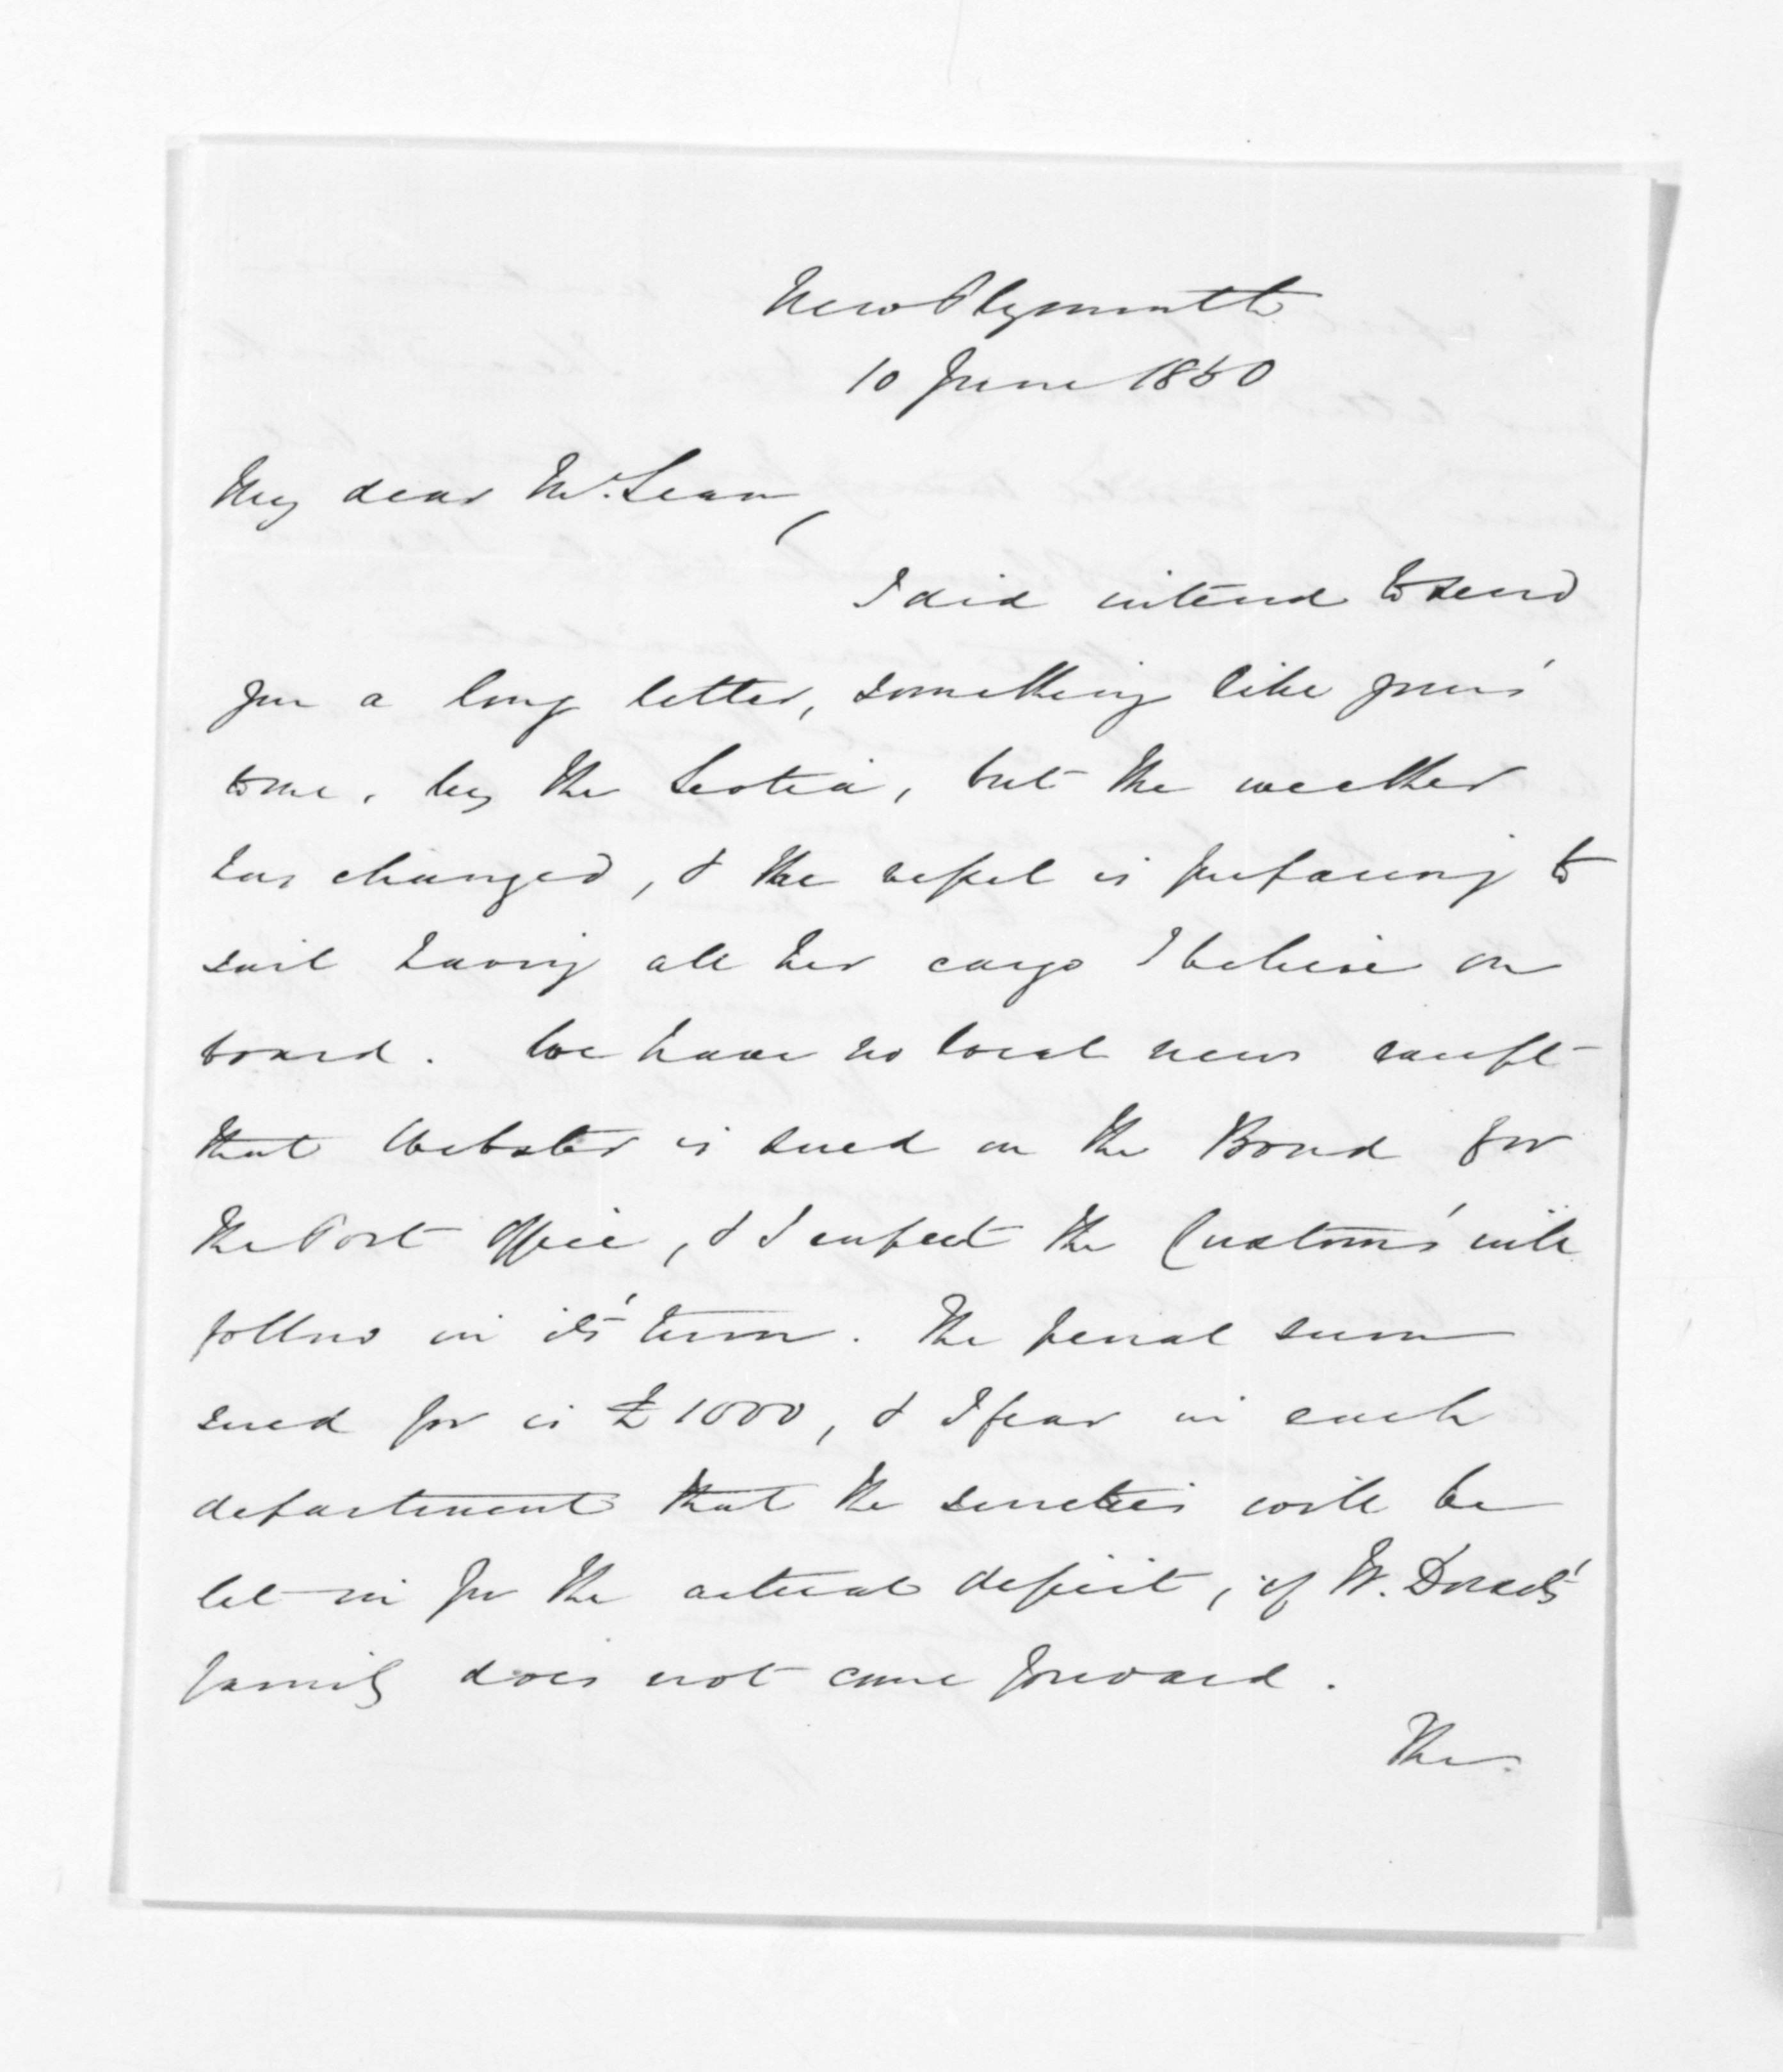 New Plymouth
10 June 1850
My dear McLean,
I did intend to send
you a long letter, something like your's
to me, by the Scotia, but the weather
has changed, & the vessel is preparing to
sail having all her cargo I believe on
board. We have no local news except
that Webster is sued on the Bond for
the Post Office, & I expect the Custom's will
follow in it's turn. The penal sum
sued for is £1000, & I fear in each
department that the sureties will be
let in for the actual deficit, if W.
family does not come forward.
The